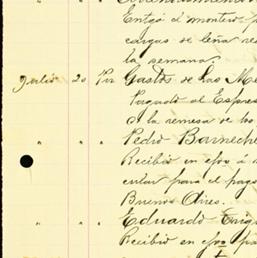 Entgó el montero p
cargas de leña re
la semana.
Julio 20 Por Gastos de las M
Pagado al Espres
a la remesa de bo
" " " Pedro Barneche
Recibió en efvo á
cular para el pag
Buenos Aires.
" " " Eduardo Enriq
Recibió en efvo pa